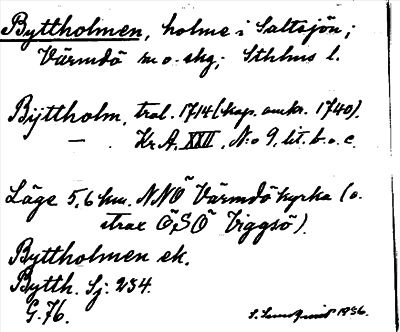 Byttholmen, holme i Saltsjön;
Värmdö sn o. skg; Sthlms l.
Bÿttholm, trol. 1714 (kop. omkr. 1740).
— Kr.A. XXII, N:o 9, lit. b. o. c.
Läge 5,6 km. NNÖ Värmdö kyrka (o.
strax ÖSÖ Viggsö).
Byttholmen ek.
Bytth. Sj: 234.
G. 76.
S. Lundquist 1936.